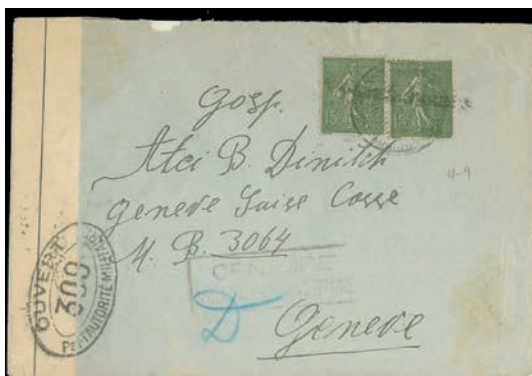 Gosp.
Atei B. Dimitch
Geneve Suise Casse
M. B. 3064
Geneve
D
4-9
15 15
OUVERT
300
PAR L'AUTORITÉ MILITAIRE